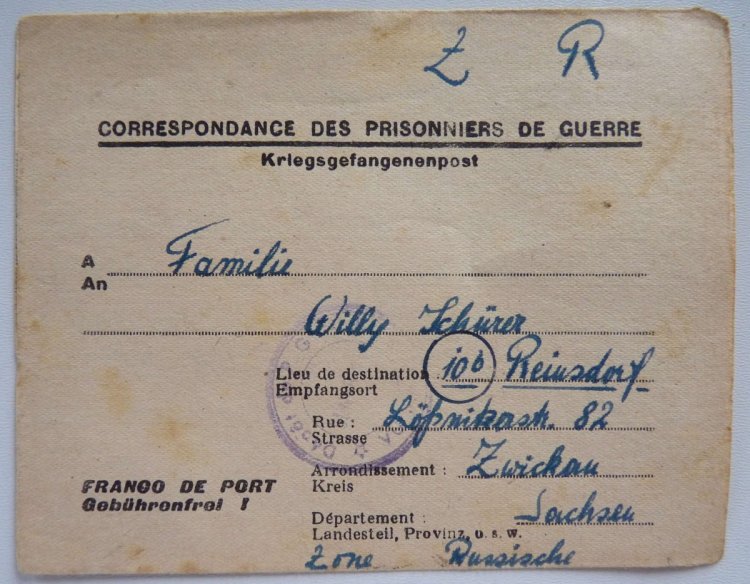 Z R
CORRESPONDANCE DES PRISONNIERS DE GUERRE
Kriegsgefangenenpost
A Familie
An
Willy Schürer
Lieu de destination 10b Reinsdorf
Empfangsort
Rue : Lößnitzerstr. 82
Strasse
Arrondissement : Zwickau
Kreis
FRANGO DE PORT
Gebührenfrei !
Département : Sachsen
Landesteil, Provinz, u. s. w.
Zone Russische